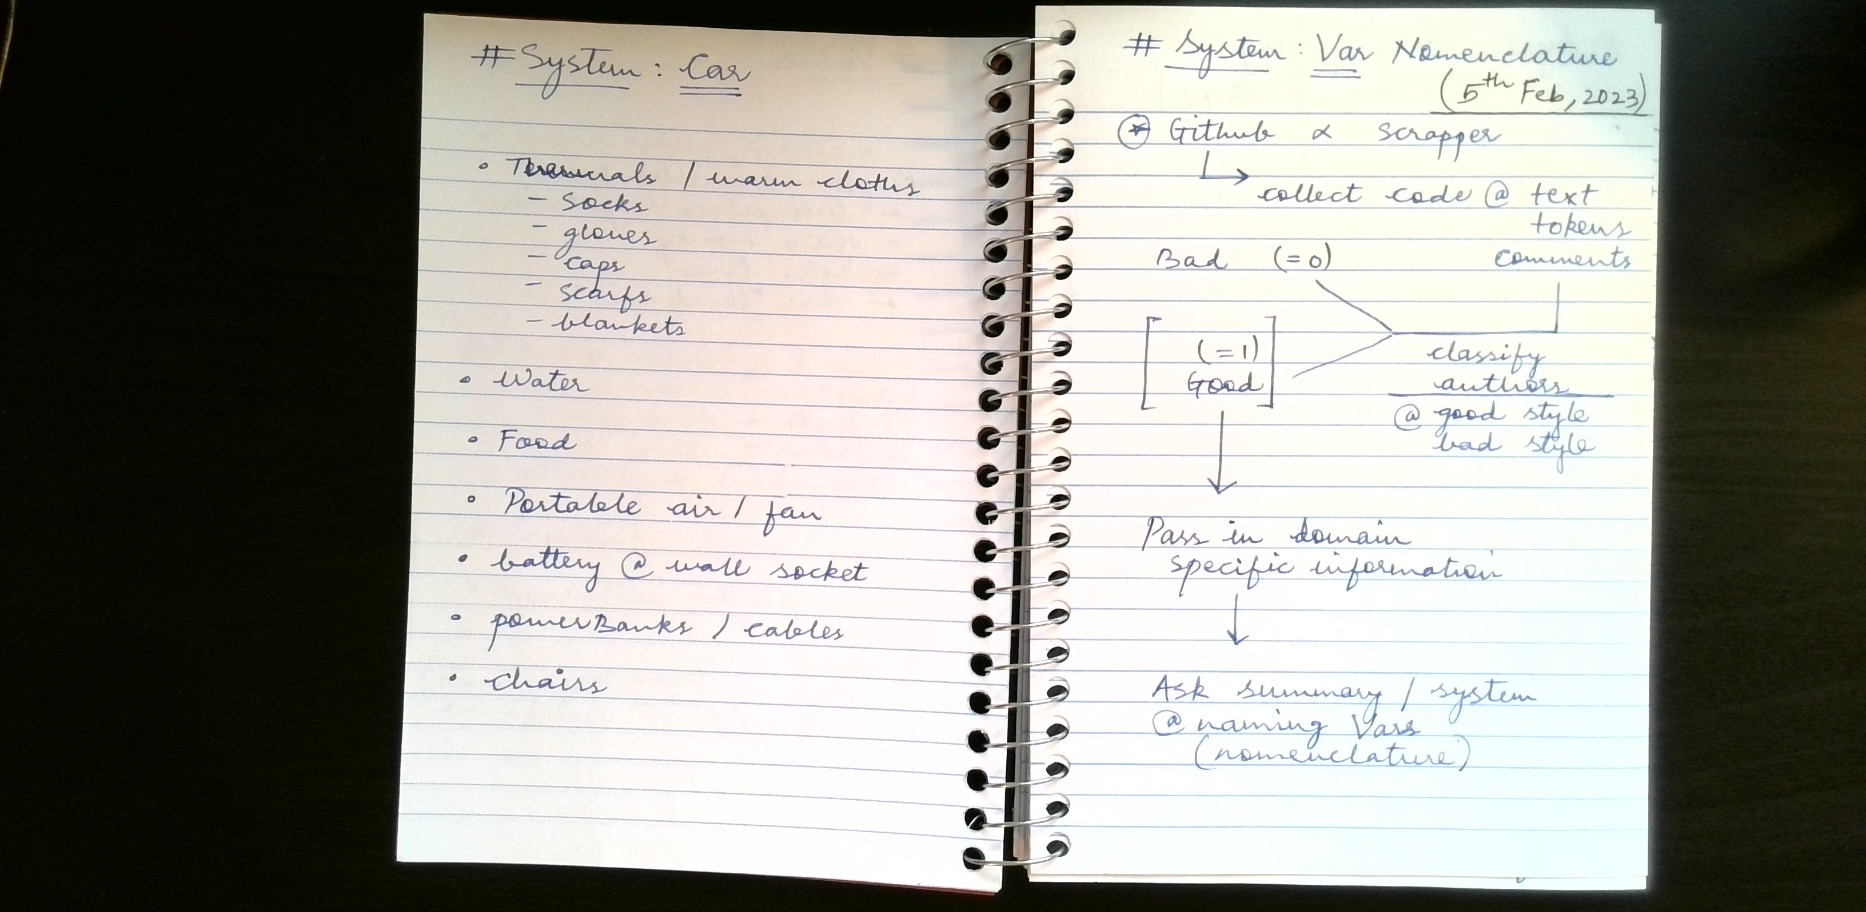 # System : Car
• / warm cloths
- Socks
- gloves
- caps
- scarfs
- blankets
• Water
• Food
• Portable air / fan
• battery @ wall socket
• powerBanks / cables
• chairs
# System : Var Nomenclature
(5th Feb, 2023)
Github ∝ scrapper
collect code @ text
tokens
Bad (=0) comments
(=1)
Good
classify
authors
@ good style
bad style
Pass in domain
specific information
Ask summary / system
@ naming Vars
(nomenclature)